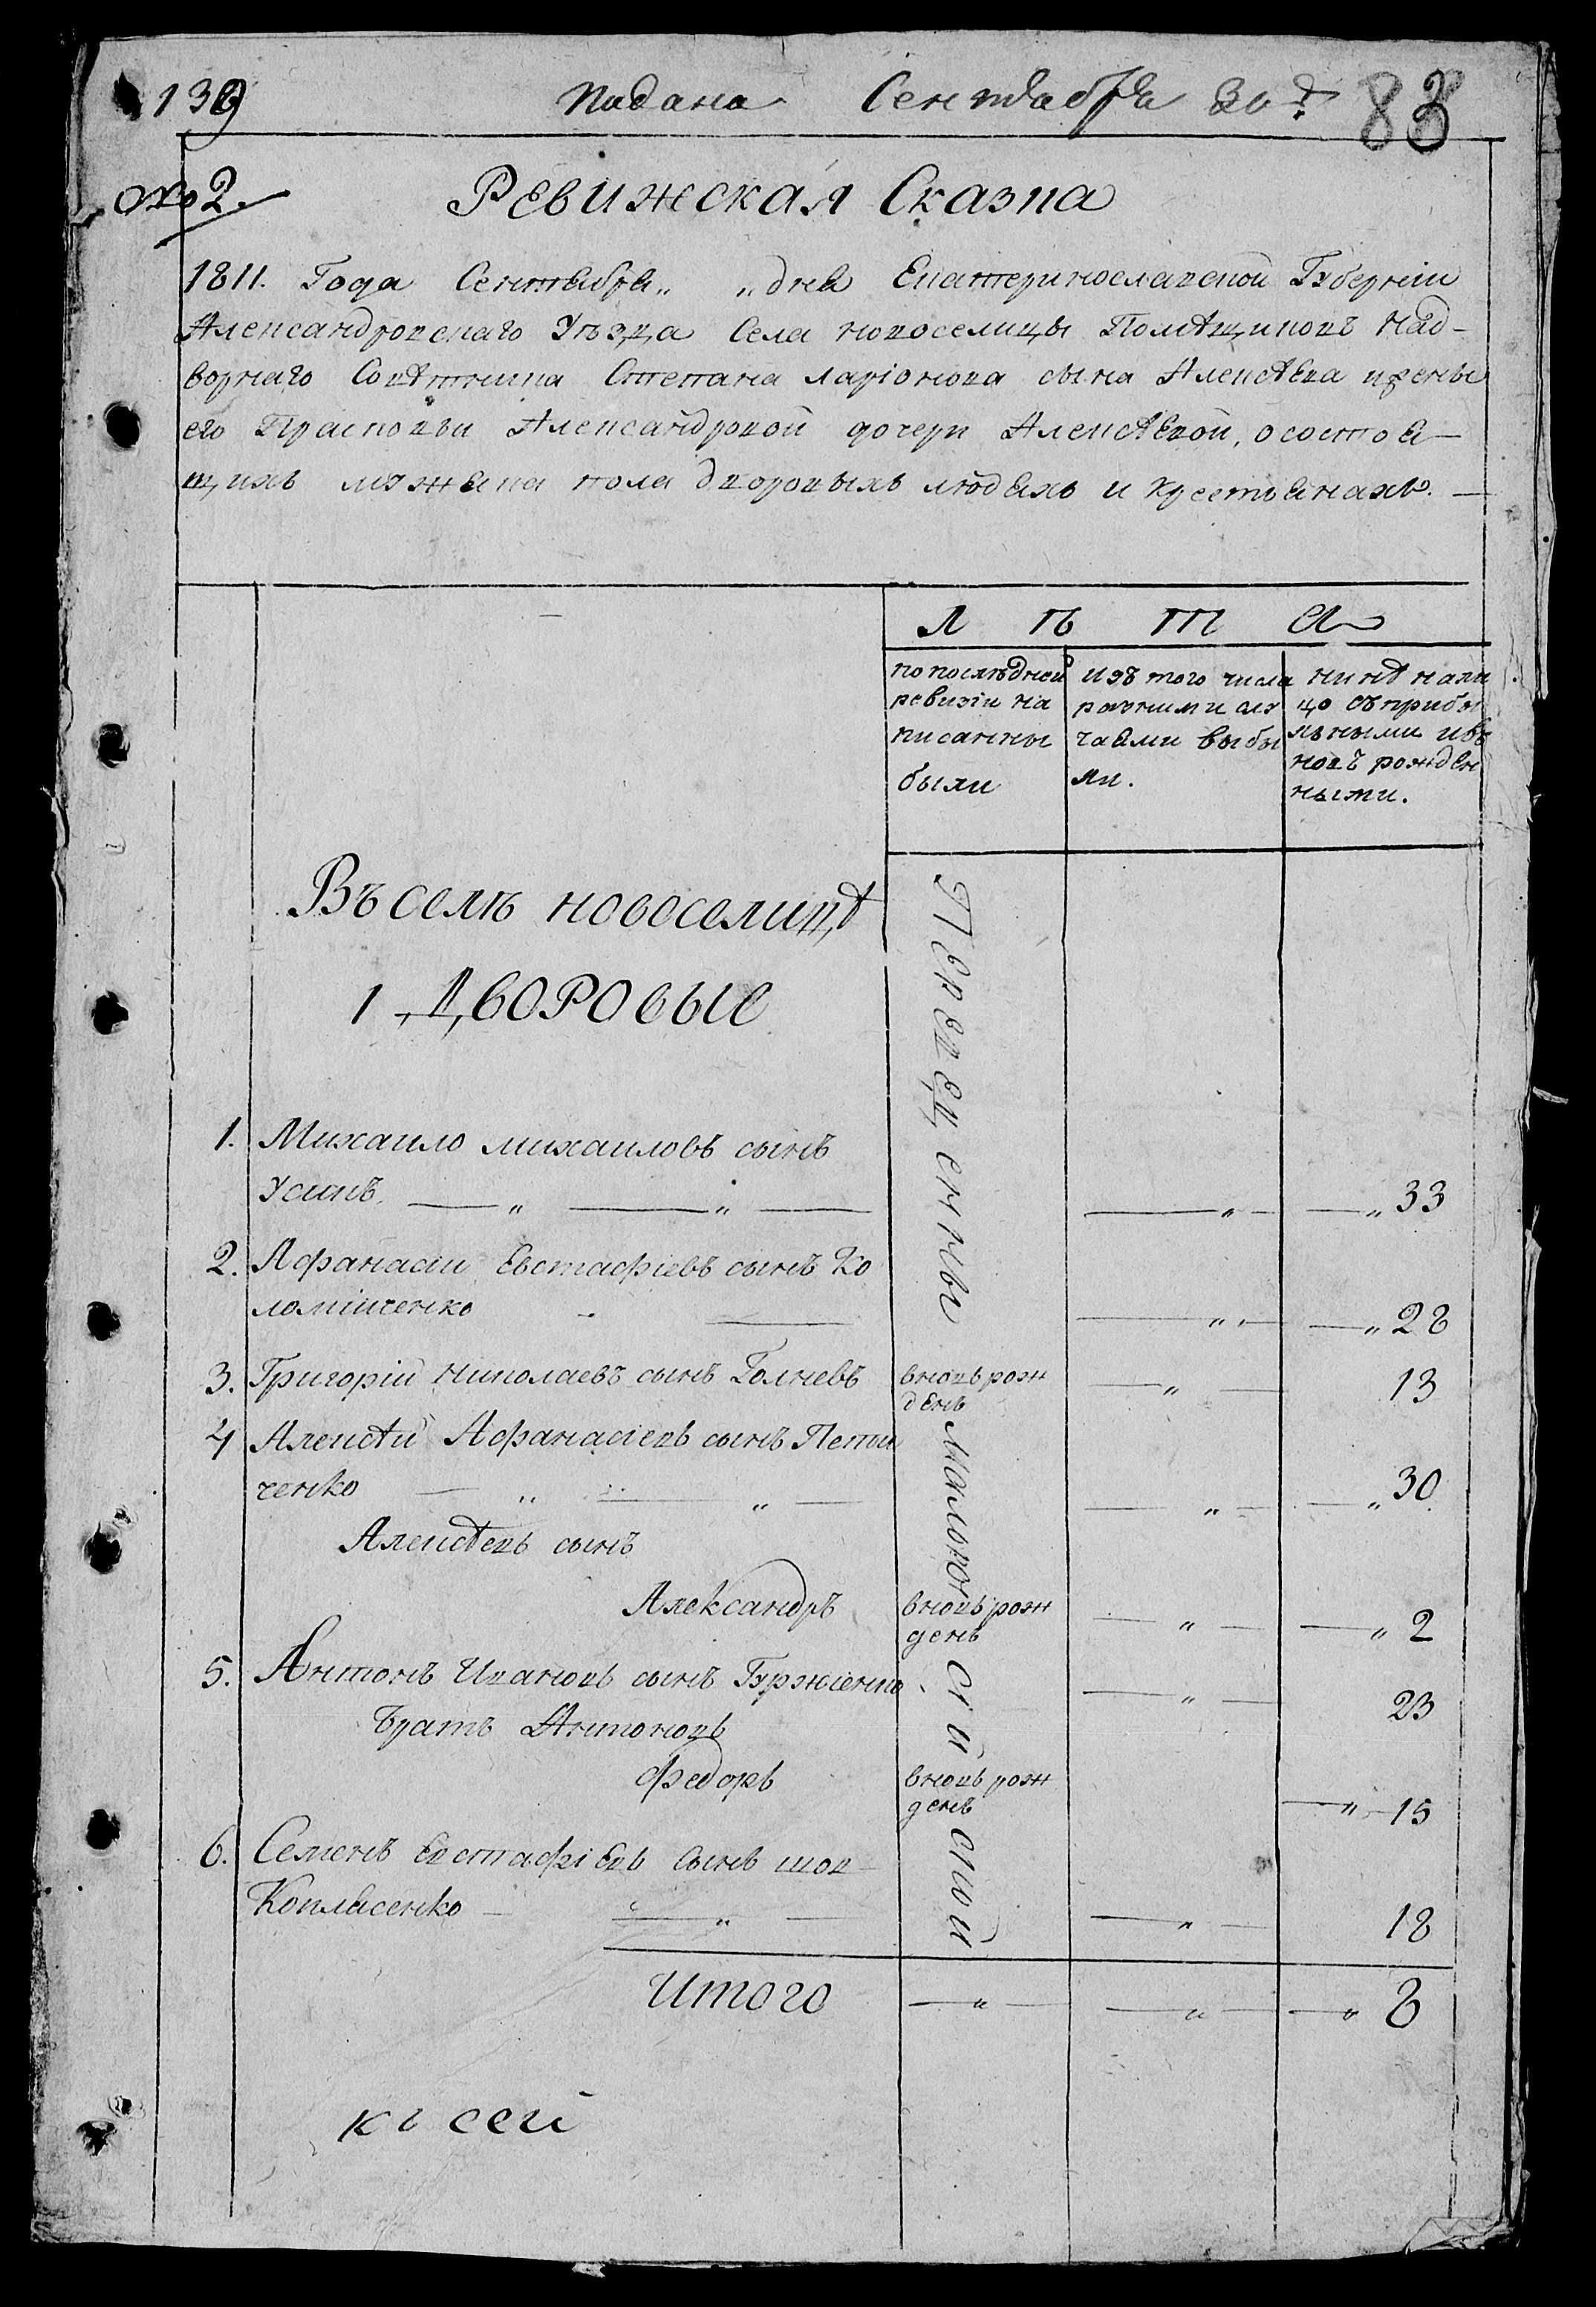 139
Подана Сентября 30 д
83
№ 2.
Ревижская Сказка
1811. Года Сентября „ „ дня Екатеринославской Губернии
Александровскаго Уѣзда Села новоселицы Помѣщиковъ Над-
ворнаго Совѣтника Степана Ларіонова сына Алексѣева и жены
его Прасковьи Александровой дочери Алексѣевой, о состоя-
щихъ мужеска пола дворовыхъ людяхъ и крестьянахъ. —
Л ѣ т а
по послѣдней
ревизіи на
писанны
были
изъ того числа
разними слу
чаями выбы
ли.
нинѣ нали
цо съ прибы
льными и въ
новъ рожден
ными.
Въ селѣ новоселицѣ
1 Дворовые
Переведенны
1. Михаило михаиловъ сынъ
Усинъ — „ — „ — — „ — — „ 33
2. Афанасіи Евстафіевъ сынъ Ко
ломійченко — „ — — „ 28
3. Григорій николаевъ сынъ Голневъ вновь рож
день — „ — 13
4 Алексѣй Афанасіевъ сынъ Пети
ченко — „ — „ — — „ — — „ 30
Алексѣевъ сынъ
Александръ вновь рож
день — „ — — „ 2
5. Антонъ Ивановъ сынъ Гуржіенко — „ — 23
братъ Антоновъ
Федоръ вновь рож
день — „ — 15
6. Семенъ Евстафіевъ сынъ шов-
Коплясенко — „ — — „ — 18
Итого — „ — — „ — — „ 8
къ сей